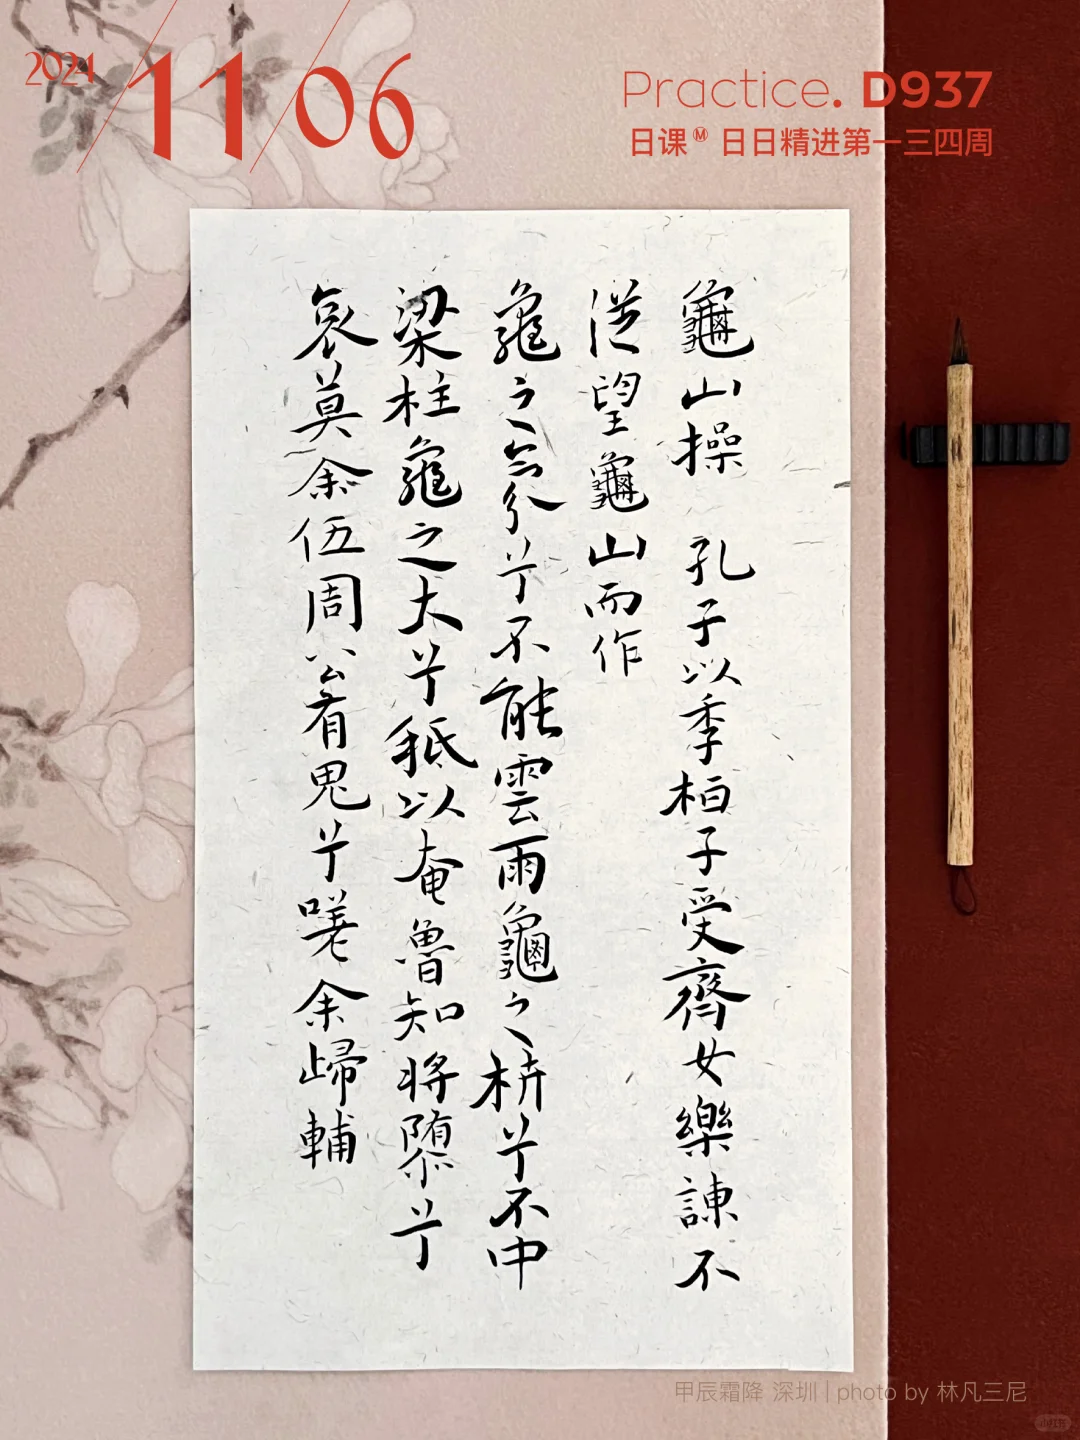 2024 11/06
Practice. D937
日课Ⓜ 日日精进第一三四周
龜山操 孔子以季桓子受齊女樂諫不
從望龜山而作
龜之氣兮不能雲雨龜之枿兮不中
梁柱龜之大兮秪以奄魯知將隳兮
哀莫余伍周公有鬼兮嗟余歸輔
甲辰霜降 深圳 | photo by 林凡三尼
小红书